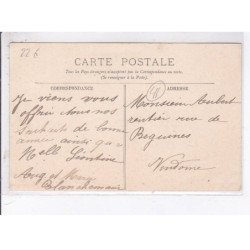 226
CARTE POSTALE
Tous les Pays étrangers n'acceptent pas la Correspondance au recto.
(Se renseigner à la Poste).
CORRESPONDANCE
ADRESSE
Je viens vous
offrir tous nos
souhaits de bonne
année ainsi que
Melle Léontine
Aug et Marie
Blanchemain
Monsieur Aubert
rentier rue de
Beguines
Vendome